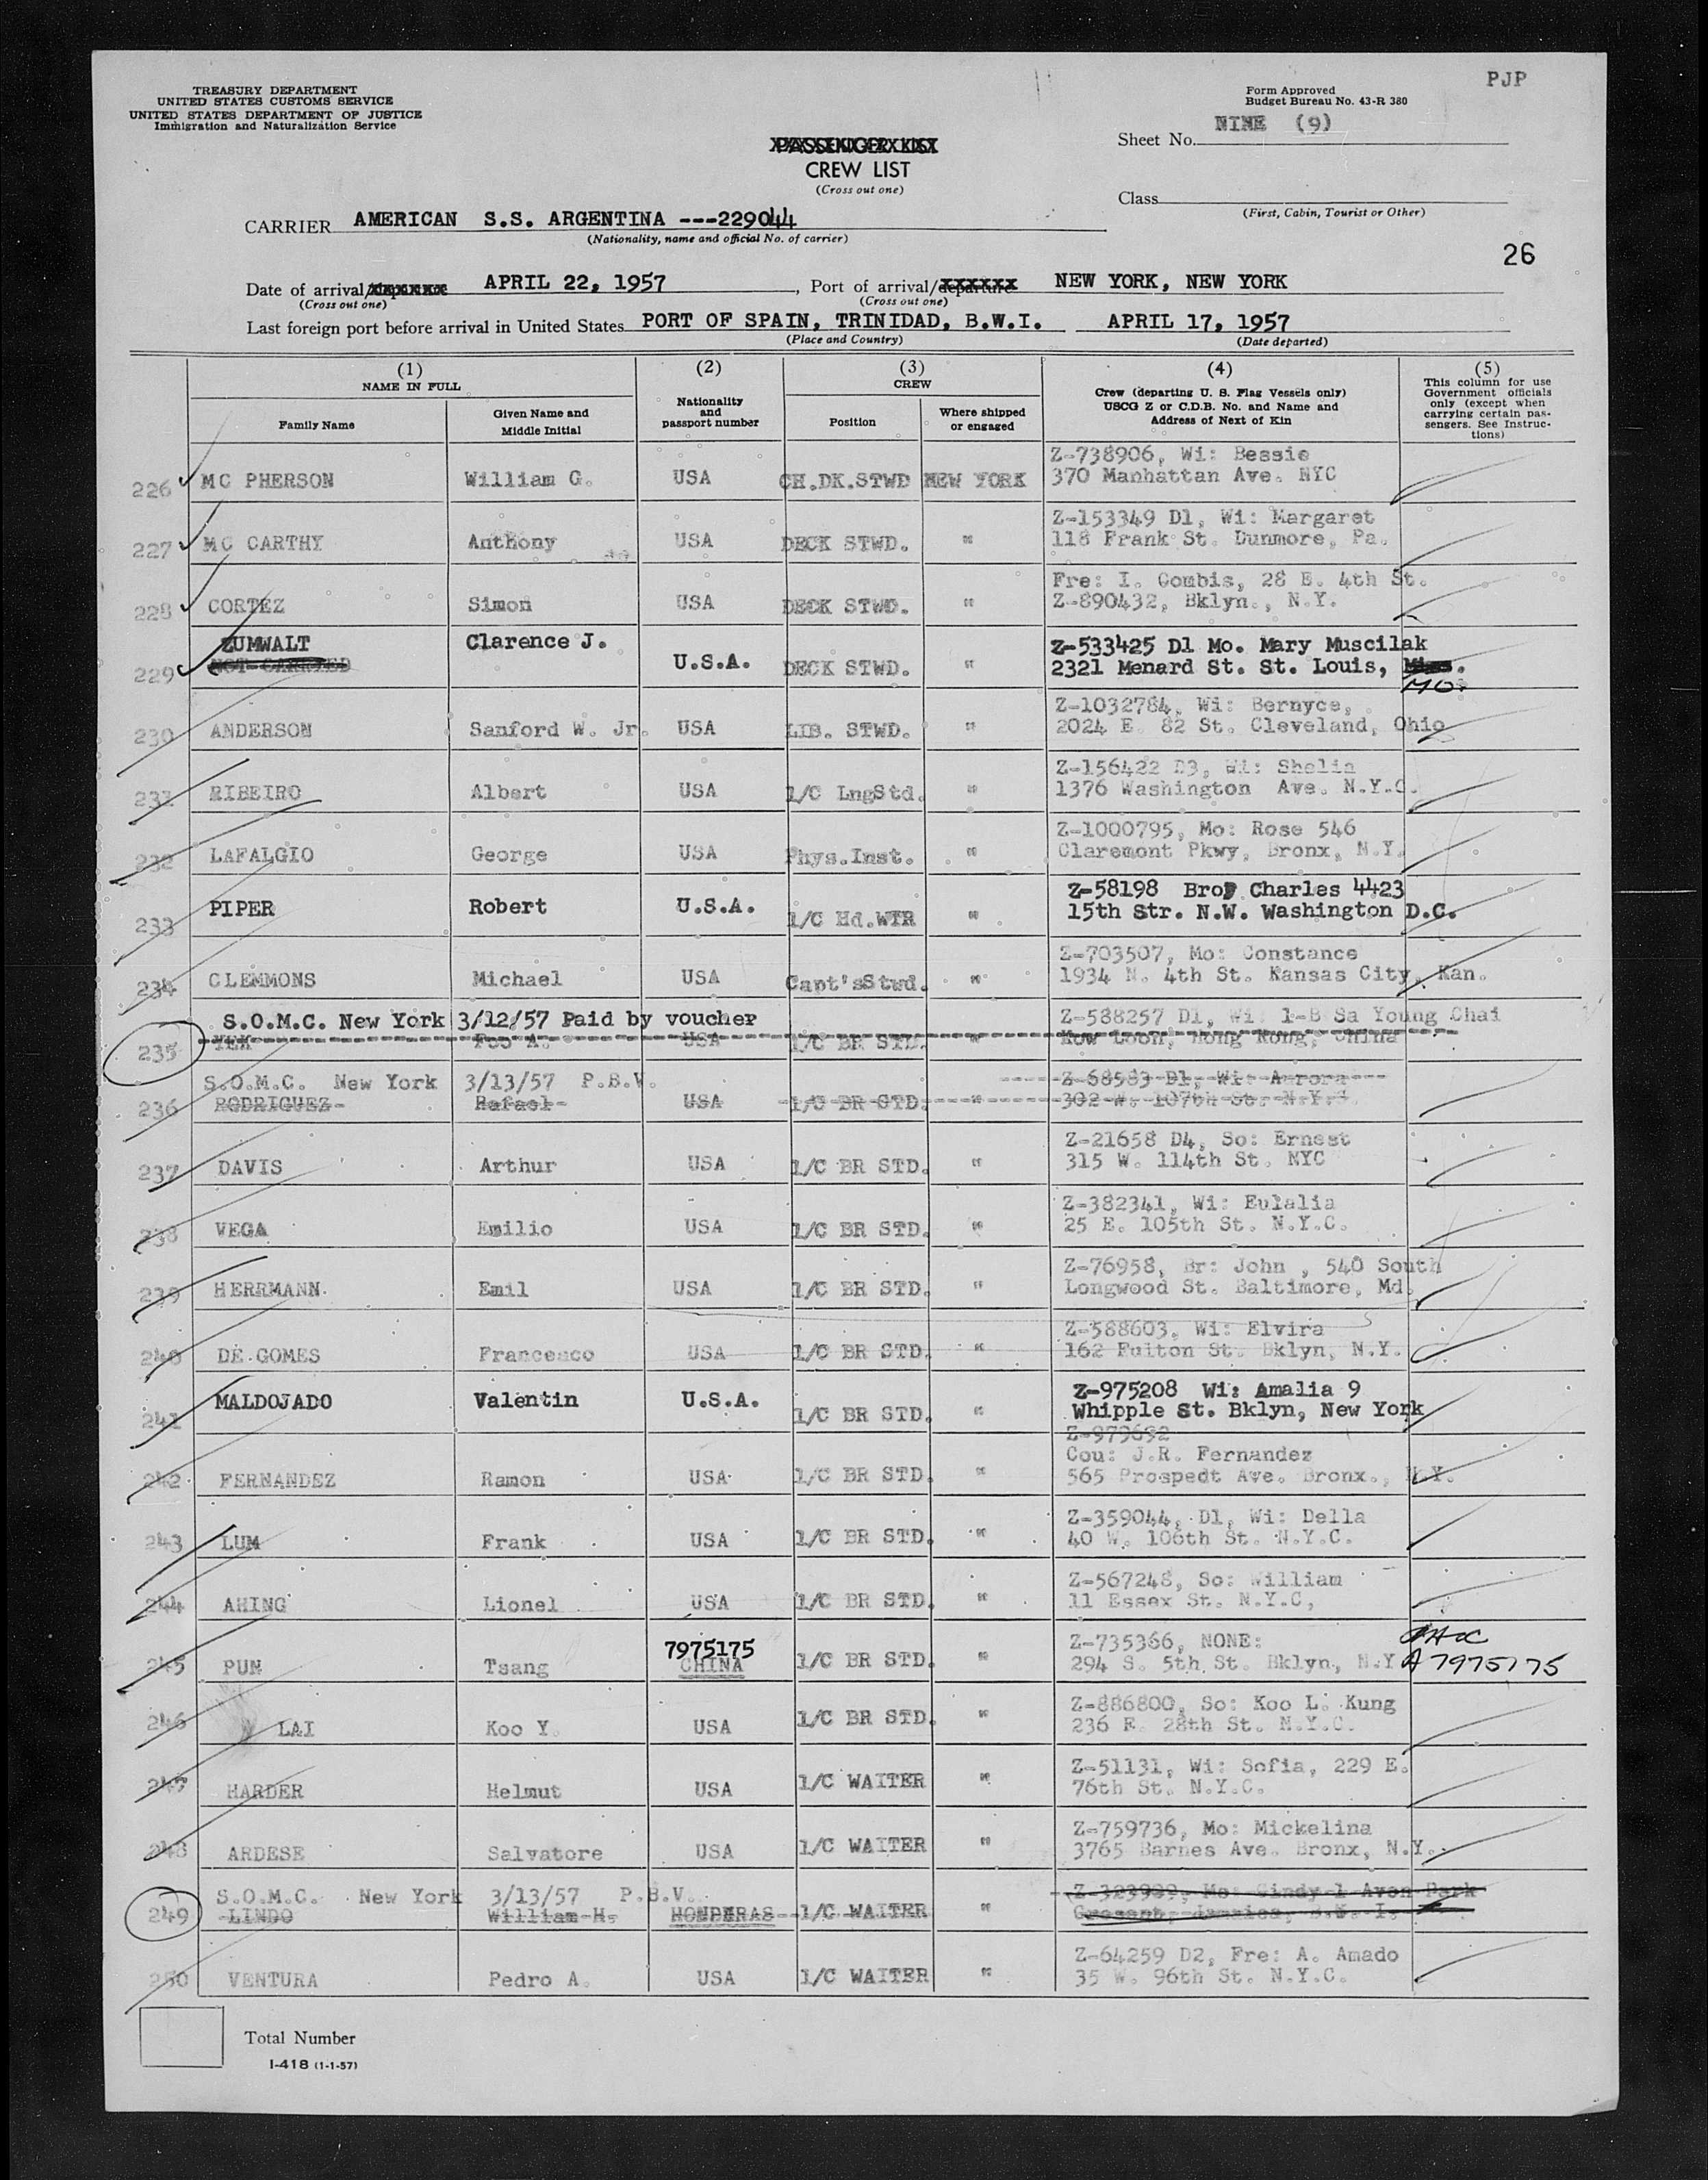 PJP
TREASURY DEPARTMENT
UNITED STATES CUSTOMS SERVICE
UNITED STATES DEPARTMENT OF JUSTICE
Immigration and Naturalization Service
Form Approved
Budget Bureau No. 43-R 380
Sheet No. NINE (9)
PASSENGER LIST
CREW LIST
(Cross out one)
Class
(First, Cabin, Tourist or Other)
CARRIER AMERICAN S.S. ARGENTINA ---229044
(Nationality, name and official No. of carrier)
26
Date of arrival/departure APRIL 22, 1957, Port of arrival/departure NEW YORK, NEW YORK
(Cross out one) (Cross out one)
Last foreign port before arrival in United States PORT OF SPAIN, TRINIDAD, B.W.I. APRIL 17, 1957
(Place and Country) (Date departed)
(1) (2) (3) (4) (5)
NAME IN FULL
Family Name
Given Name and
Middle Initial
Nationality
and
passport number
CREW
Position
Where shipped
or engaged
Crew (departing U. S. Flag Vessels only)
USCG Z or C.D.B. No. and Name and
Address of Next of Kin
This column for use
Government officials
only (except when
carrying certain pas-
sengers. See Instruc-
tions)
Z-738906, Wi: Bessie
226 MC PHERSON William G. USA CH.DK.STWD NEW YORK 370 Manhattan Ave. NYC
Z-153349 D1, Wi: Margaret
227 MC CARTHY Anthony USA DECK STWD. " 118 Frank St. Dunmore, Pa.
Fre: I. Gombis, 28 E. 4th St.
228 CORTEZ Simon USA DECK STWD. " Z-890432, Bklyn., N.Y.
ZUMWALT Clarence J. Z-533425 D1 Mo. Mary Muscilak
229 NOT CARRIED U.S.A. DECK STWD. " 2321 Menard St. St. Louis,
MO.
Z-1032784, Wi: Bernyce,
230 ANDERSON Sanford W. Jr. USA LIB. STWD. " 2024 E. 82 St. Cleveland, Ohio
Z-156422 D3, Wi: Shelia
231 RIBEIRO Albert USA 1/C LngStd. " 1376 Washington Ave. N.Y.C.
Z-1000795, Mo: Rose 546
232 LAFALGIO George USA Phys.Inst. " Claremont Pkwy, Bronx, N.Y.
Z-58198 Bro, Charles 4423
233 PIPER Robert U.S.A. 1/C Hd.WTR " 15th Str. N.W. Washington D.C.
Z-703507, Mo: Constance
234 CLEMMONS Michael USA Capt'sStwd. " 1934 N. 4th St. Kansas City, Kan.
S.O.M.C. New York 3/12/57 Paid by voucher Z-588257 D1, Wi 1-B Sa Young Chai
235 Foo A. USA 1/C BR STD. " Kow Loon, Hong Kong, China
S.O.M.C. New York 3/13/57 P.B.V. Z-68583 D1, Wi: Aurora
236 RODRIGUEZ Rafael USA 1/C BR STD. " 302 W. 107th St. N.Y.
Z-21658 D4, So: Ernest
237 DAVIS Arthur USA 1/C BR STD. " 315 W. 114th St. NYC
Z-382341, Wi: Eulalia
238 VEGA Emilio USA 1/C BR STD. " 25 E. 105th St. N.Y.C.
Z-76958, Br: John , 540 South
239 HERRMANN. Emil USA 1/C BR STD. " Longwood St. Baltimore, Md.
Z-588603, Wi: Elvira
240 DE GOMES Francesco USA 1/C BR STD. " 162 Fulton St. Bklyn, N.Y.
Z-975208 Wi: Amalia 9
241 MALDOJADO Valentin U.S.A. 1/C BR STD. " Whipple St. Bklyn, New York
Z-979692
Cou: J.R. Fernandez
242 FERNANDEZ Ramon USA 1/C BR STD. " 565 Prospedt Ave. Bronx., N.Y.
Z-359044, D1, Wi: Della
243 LUM Frank USA 1/C BR STD. " 40 W. 106th St. N.Y.C.
Z-567248, So: William
244 AHING Lionel USA 1/C BR STD. " 11 Essex St. N.Y.C,
7975175 Z-735366, NONE:
245 PUN Tsang CHINA 1/C BR STD. " 294 S. 5th St. Bklyn, N.Y A7975175
Z-886800, So: Koo L. Kung
246 LAI Koo Y. USA 1/C BR STD. " 236 E. 28th St. N.Y.C.
Z-51131, Wi: Sofia, 229 E.
247 HARDER Helmut USA 1/C WAITER " 76th St. N.Y.C.
Z-759736, Mo: Mickelina
248 ARDESE Salvatore USA 1/C WAITER " 3765 Barnes Ave. Bronx, N.Y.
S.O.M.C. New York 3/13/57 P.B.V. Mo: Cindy 1 Avon Park
249 LINDO William H. HONDERAS 1/C WAITER " Cresent, Jamaica,
Z-64259 D2, Fre: A. Amado
250 VENTURA Pedro A. USA 1/C WAITER " 35 W. 96th St. N.Y.C.
Total Number
I-418 (1-1-57)